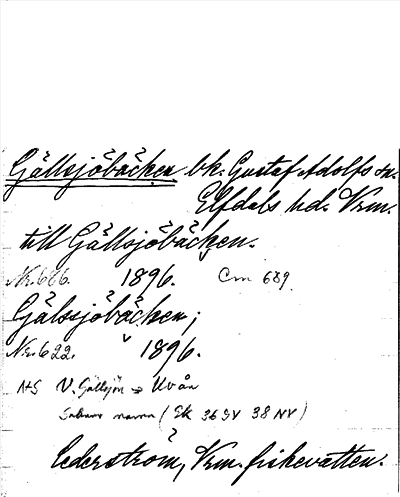 Gällsjöbäcken bk. Gustaf Adolfs sn.
Elfdals hd. Vrm.
till Gällsjöbäcken.
Nr. 686. 1896. Cm 689.
Gälssjöbäcken;
Nr. 622. 1896.
A+S V. Gällsjön → Uvån
namn (Ek 36 SV 38 NV)
Cederström, Vrm. fiskevatten.